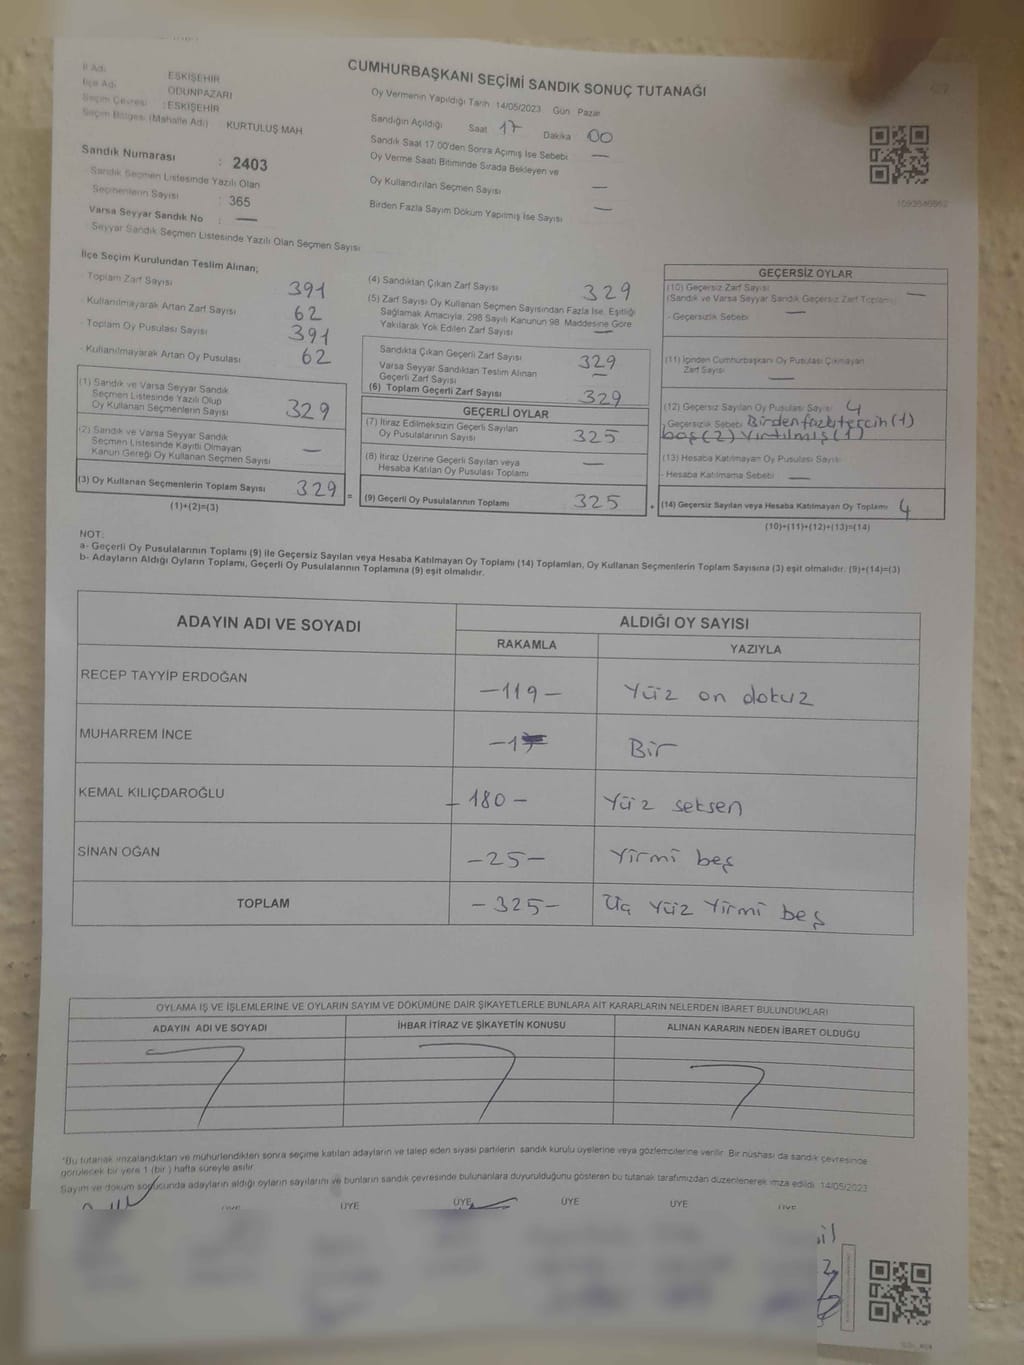 CUMHURBAŞKANI SEÇİMİ SANDIK SONUÇ TUTANAĞI
İl Adı ESKİŞEHİR
İlçe Adı ODUNPAZARI
Seçim Çevresi : ESKİŞEHİR
Seçim Bölgesi (Mahalle Adı) KURTULUŞ MAH
Sandık Numarası : 2403
Sandık Seçmen Listesinde Yazılı Olan
Seçmenlerin Sayısı : 365
Varsa Seyyar Sandık No : —
Seyyar Sandık Seçmen Listesinde Yazılı Olan Seçmen Sayısı
Oy Vermenin Yapıldığı Tarih : 14/05/2023 Gün : Pazar
Sandığın Açıldığı Saat 17 Dakika 00
Sandık Saat 17.00'den Sonra Açımış İse Sebebi —
Oy Verme Saati Bitiminde Sırada Bekleyen ve
Oy Kullandırılan Seçmen Sayısı —
Birden Fazla Sayım Döküm Yapılmış İse Sayısı —
1093646962
İlçe Seçim Kurulundan Teslim Alınan;
- Toplam Zarf Sayısı 391
- Kullanılmayarak Artan Zarf Sayısı 62
- Toplam Oy Pusulası Sayısı 391
- Kullanılmayarak Artan Oy Pusulası 62
(1) Sandık ve Varsa Seyyar Sandık
Seçmen Listesinde Yazılı Olup
Oy Kullanan Seçmenlerin Sayısı 329
(2) Sandık ve Varsa Seyyar Sandık
Seçmen Listesinde Kayıtlı Olmayan
Kanun Gereği Oy Kullanan Seçmen Sayısı —
(3) Oy Kullanan Seçmenlerin Toplam Sayısı 329 =
(1)+(2)=(3)
(4) Sandıktan Çıkan Zarf Sayısı 329
(5) Zarf Sayısı Oy Kullanan Seçmen Sayısından Fazla İse, Eşitliği
Sağlamak Amacıyla, 298 Sayılı Kanunun 98. Maddesine Göre
Yakılarak Yok Edilen Zarf Sayısı —
Sandıkta Çıkan Geçerli Zarf Sayısı 329
Varsa Seyyar Sandıktan Teslim Alınan
Geçerli Zarf Sayısı —
(6) Toplam Geçerli Zarf Sayısı 329
GEÇERLİ OYLAR
(7) İtiraz Edilmeksizin Geçerli Sayılan
Oy Pusulalarının Sayısı 325
(8) İtiraz Üzerine Geçerli Sayılan veya
Hesaba Katılan Oy Pusulası Toplamı —
(9) Geçerli Oy Pusulalarının Toplamı 325 +
GEÇERSİZ OYLAR
(10) Geçersiz Zarf Sayısı —
(Sandık ve Varsa Seyyar Sandık Geçersiz Zarf Toplamı)
- Geçersizlik Sebebi —
(11) İçinden Cumhurbaşkanı Oy Pusulası Çıkmayan
Zarf Sayısı —
(12) Geçersiz Sayılan Oy Pusulası Sayısı 4
- Geçersizlik Sebebi Birden fazla tercih (1)
boş (2) Yırtılmış (1)
(13) Hesaba Katılmayan Oy Pusulası Sayısı
- Hesaba Katılmama Sebebi —
(14) Geçersiz Sayılan veya Hesaba Katılmayan Oy Toplamı 4
(10)+(11)+(12)+(13)=(14)
NOT:
a- Geçerli Oy Pusulalarının Toplamı (9) ile Geçersiz Sayılan veya Hesaba Katılmayan Oy Toplamı (14) Toplamları, Oy Kullanan Seçmenlerin Toplam Sayısına (3) eşit olmalıdır. (9)+(14)=(3)
b- Adayların Aldığı Oyların Toplamı, Geçerli Oy Pusulalarının Toplamına (9) eşit olmalıdır.
ADAYIN ADI VE SOYADI ALDIĞI OY SAYISI
RAKAMLA YAZIYLA
RECEP TAYYİP ERDOĞAN -119- Yüz on dokuz
MUHARREM İNCE -1 Bir
KEMAL KILIÇDAROĞLU -180- Yüz seksen
SİNAN OĞAN -25- Yirmi beş
TOPLAM -325- Üç Yüz Yirmi beş
OYLAMA İŞ VE İŞLEMLERİNE VE OYLARIN SAYIM VE DÖKÜMÜNE DAİR ŞİKAYETLERLE BUNLARA AİT KARARLARIN NELERDEN İBARET BULUNDUKLARI
ADAYIN ADI VE SOYADI İHBAR İTİRAZ VE ŞİKAYETİN KONUSU ALINAN KARARIN NEDEN İBARET OLDUĞU
*Bu tutanak imzalandıktan ve mühürlendikten sonra seçime katılan adayların ve talep eden siyasi partilerin sandık kurulu üyelerine veya gözlemcilerine verilir. Bir nüshası da sandık çevresinde
görülecek bir yere 1 (bir) hafta süreyle asılır.
Sayım ve döküm sonucunda adayların aldığı oyların sayılarını ve bunların sandık çevresinde bulunanlara duyurulduğunu gösteren bu tutanak tarafımızdan düzenlenerek imza edildi. 14/05/2023
ÜYE ÜYE ÜYE ÜYE ÜYE ÜYE